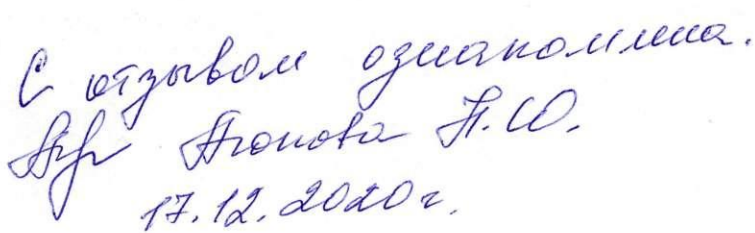 С отзывом ознакомлена.
Ю.
17.12.2020 г.